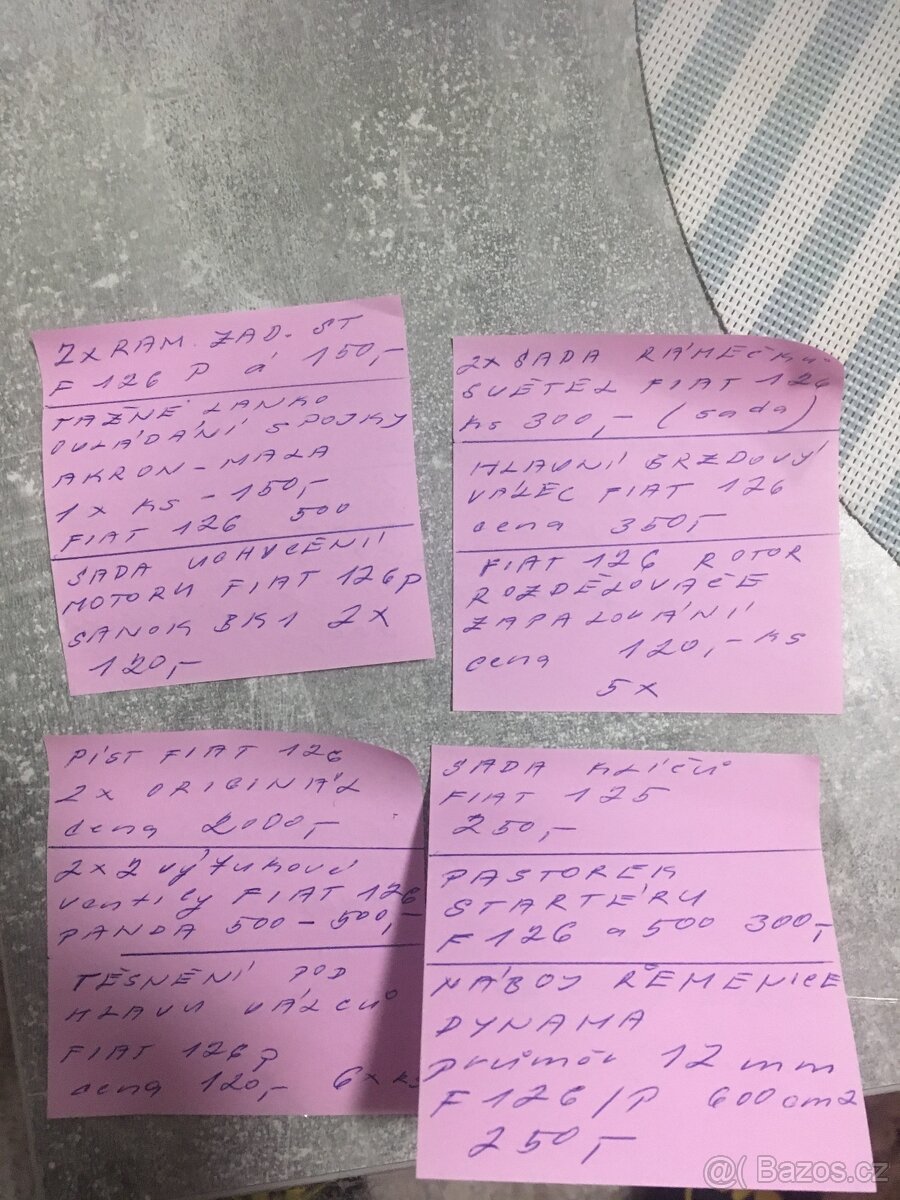 2X RAM. ZAD. ST
F 126 P á 150,-
TAŽNÉ LANKO
OVLÁDÁNÍ SPOJKY
AKRON-MALA
1 X KS - 150,-
FIAT 126 500
SADA UCHYCENÍ
MOTORU FIAT 126P
SANOK BK1 2X
120,-
2X SADA RÁMEČKŮ
SVĚTEL FIAT 126
KS 300,- (sada)
HLAVNÍ BRZDOVÝ
VÁLEC FIAT 126
cena 350,-
FIAT 126 ROTOR
ROZDĚLOVAČE
ZAPALOVÁNÍ
cena 120,- KS
5X
PÍST FIAT 126
2X ORIGINÁL
cena 2000,-
2X2 výfukové
ventily FIAT 126
PANDA 500 - 500,-
TĚSNĚNÍ POD
HLAVU VÁLCŮ
FIAT 126p
cena 120,- 6x ks
SADA KLÍČŮ
FIAT 125
250,-
PASTOREK
STARTÉRU
F 126 a 500 300,-
NÁBOJ ŘEMENICE
DYNAMA
průměr 12 mm
F 126/P 600cm2
250,-
@( Bazos.cz